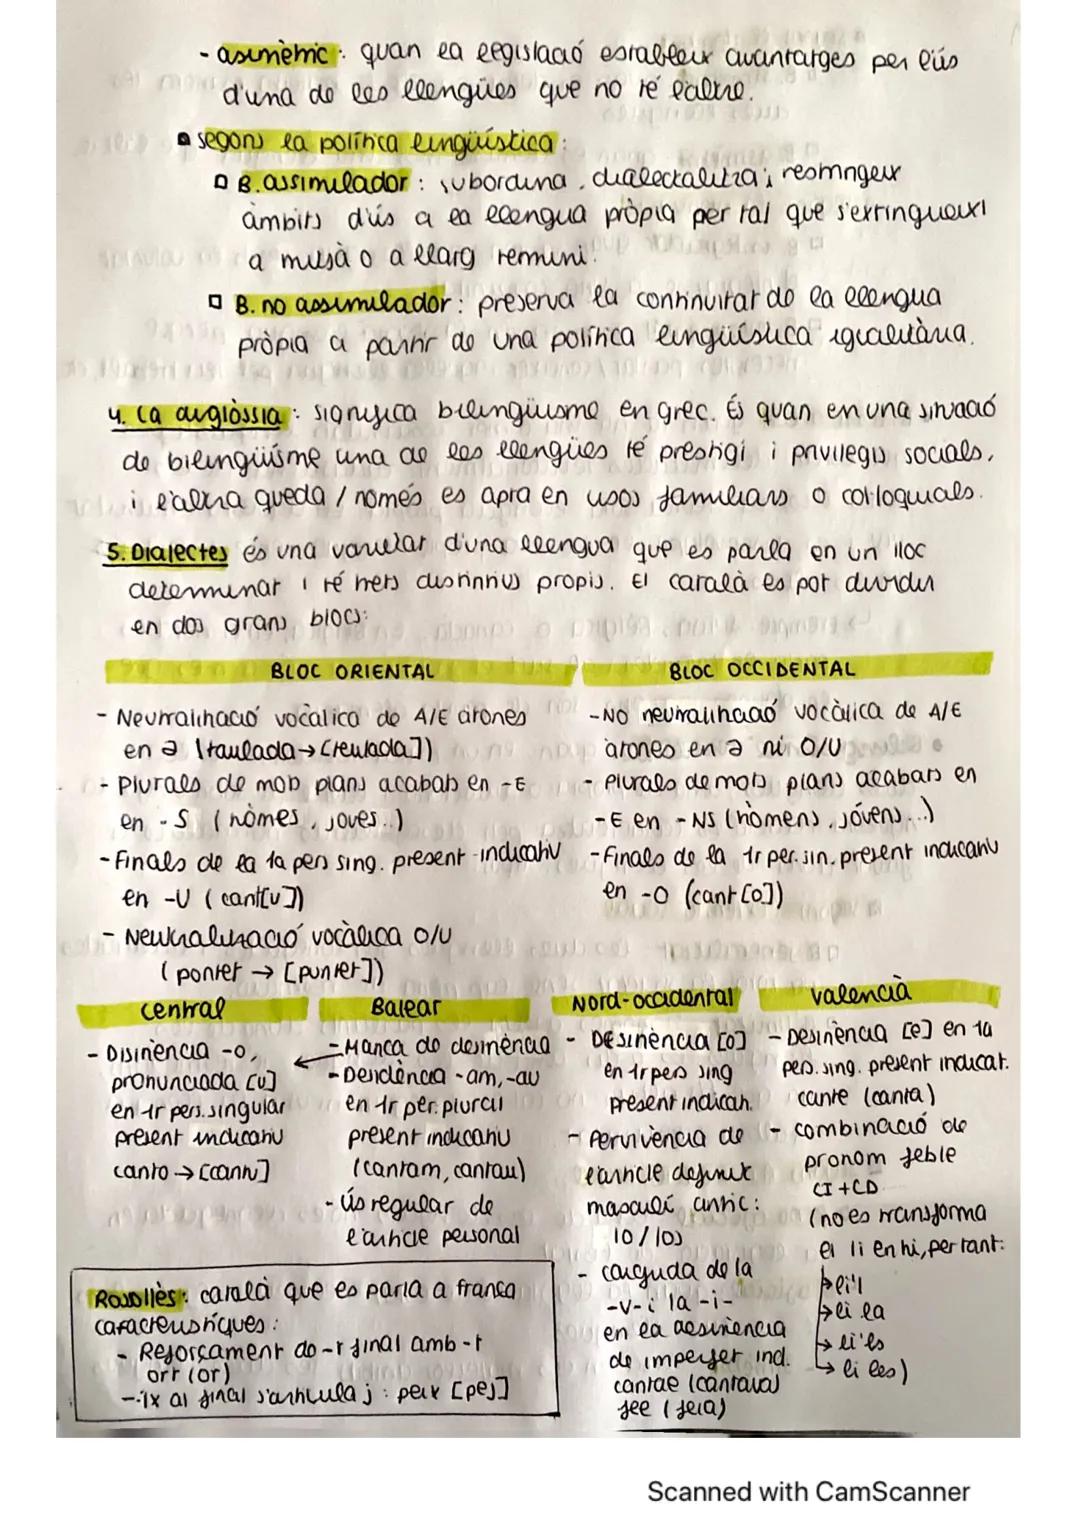 - asimètric: quan la legislació estableix avantatges per l'ús
d'una de les llengües que no té l'altre.
segons la política lingüística:
B. assimilador: subordina, dialectalitza i restringeix
àmbits d'ús a la llengua pròpia per tal que s'extingueixi
a mitjà o a llarg termini.
B. no assimilador: preserva la continuitat de la llengua
pròpia a partir de una política lingüística igualitària.
4. La diglòssia: significa bilingüisme en grec. És quan en una situació
de bilingüisme una de les llengües té prestigi i privilegis socials,
i l'altra queda / només es apta en usos familiars o col·loquials.
5. Dialectes és una varietat d'una llengua que es parla en un lloc
determinat i té trets distintius propis. El català es pot dividir
en dos grans blocs:
BLOC ORIENTAL
- Neutralització vocàlica de A/E àtones
en ə (taulada → [teulada])
- Plurals de mots plans acabats en -E
en -S (hòmes, joves..)
- Finals de la 1a pers sing. present indicatiu
en -U (cant[u])
- Neutralització vocàlica O/U
(pontet → [puntet])
BLOC OCCIDENTAL
- NO neutralització vocàlica de A/E
àtones en ə ni O/U
- Plurals de mots plans acabats en
-E en -NS (hòmens, jóvens...)
- Finals de la 1r per. sin. present indicatiu
en -O (cant[o])
Central
- Disinència -o,
pronunciada [u]
en 1r pers. singular
present indicatiu
canto → [cantu]
Balear
- Manca de desinència
- Desidència -am, -au
en 1r per. plural
present indicatiu
(cantam, cantau)
- Ús regular de
l'article personal
Nord-occidental
- Desinència [o]
en 1r pers sing
present indicati.
- Pervivència de
l'article definit
masculí antic:
lo / los
- Caiguda de la
-v- i la -i-
en la desinència
de imperfet ind.
cantae (cantava)
fee (feia)
Valencià
- Desinència [e] en 1a
pers. sing. present indicat.
cante (canta)
- combinació de
pronom feble
CI + CD
(no es transforma
el li en hi, per tant:
li'l
li la
li'ls
li les)
Rosollès: català que es parla a frança
característiques:
- Reforçament de -r final amb -t
ort (or)
- -ix al final s'articula j: peix [pej]
Scanned with CamScanner